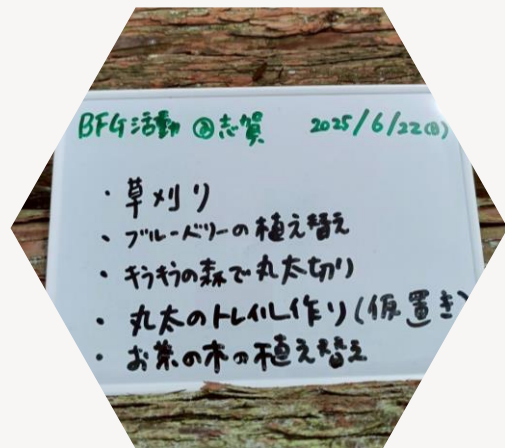 BFG活動 @志賀 2025/6/22(日)
・草刈り
・ブルーベリーの植え替え
・キラキラの森で丸太切り
・丸太のトレイル作り(仮置き)
・お茶の木の植え替え